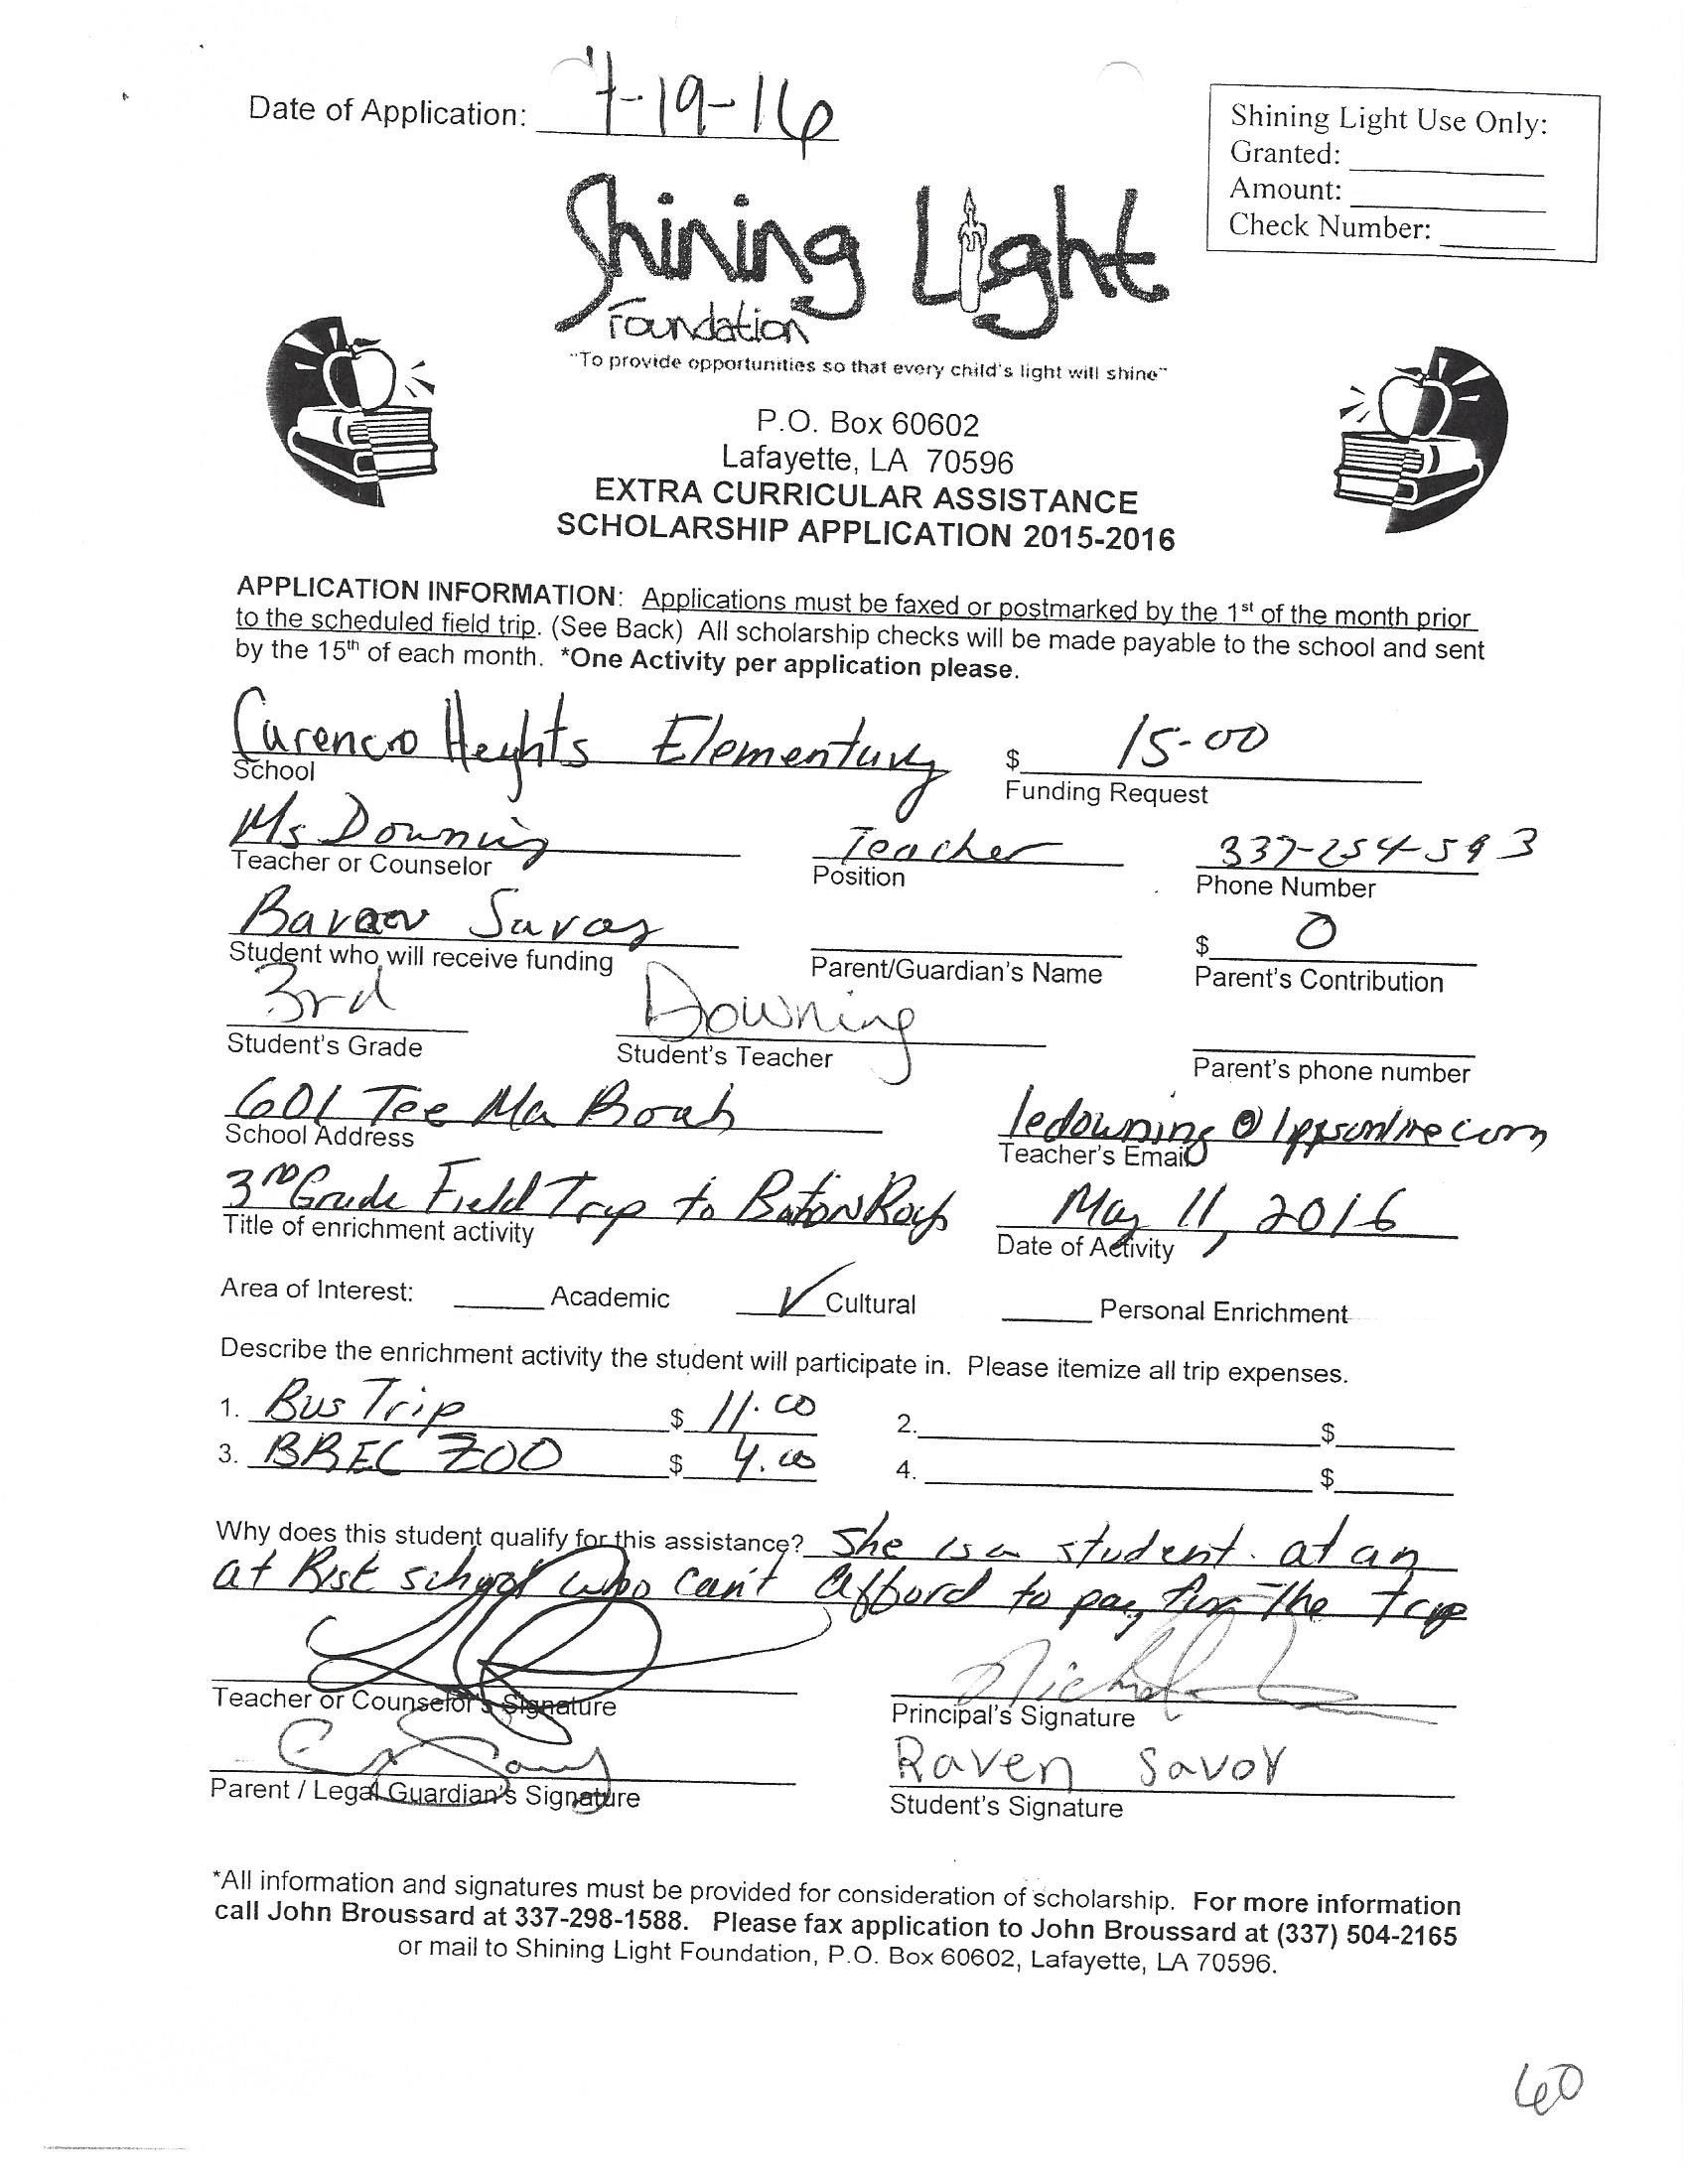 Date of Application: -19-16
Shining Light Use Only:
Granted:
Amount:
Check Number:
Shining Light
Foundation
"To provide opportunities so that every child's light will shine"
P.O. Box 60602
Lafayette, LA 70596
EXTRA CURRICULAR ASSISTANCE
SCHOLARSHIP APPLICATION 2015-2016
APPLICATION INFORMATION: Applications must be faxed or postmarked by the 1st of the month prior
to the scheduled field trip. (See Back) All scholarship checks will be made payable to the school and sent
by the 15th of each month. *One Activity per application please.
Carencro Heights Elementary $ 15.00
School Funding Request
Ms Downing Teacher 337-254-593
Teacher or Counselor Position Phone Number
Savoy $ 0
Student who will receive funding Parent/Guardian's Name Parent's Contribution
3rd Downing
Student's Grade Student's Teacher Parent's phone number
601 Tee Ma Roab ledowning@lppsonline.com
School Address Teacher's Email
3RD Grade Field Trip to Baton Roug May 11, 2016
Title of enrichment activity Date of Activity
Area of Interest: Academic ✓ Cultural Personal Enrichment
Describe the enrichment activity the student will participate in. Please itemize all trip expenses.
1. Bus Trip $ 11.00 2. $
3. BREC ZOO $ 4.00 4. $
Why does this student qualify for this assistance? She is a student at an
at Risk school who can't afford to pay for the trip
Teacher or Counselor's Signature Principal's Signature
Raven Savoy
Parent / Legal Guardian's Signature Student's Signature
*All information and signatures must be provided for consideration of scholarship. For more information
call John Broussard at 337-298-1588. Please fax application to John Broussard at (337) 504-2165
or mail to Shining Light Foundation, P.O. Box 60602, Lafayette, LA 70596.
60